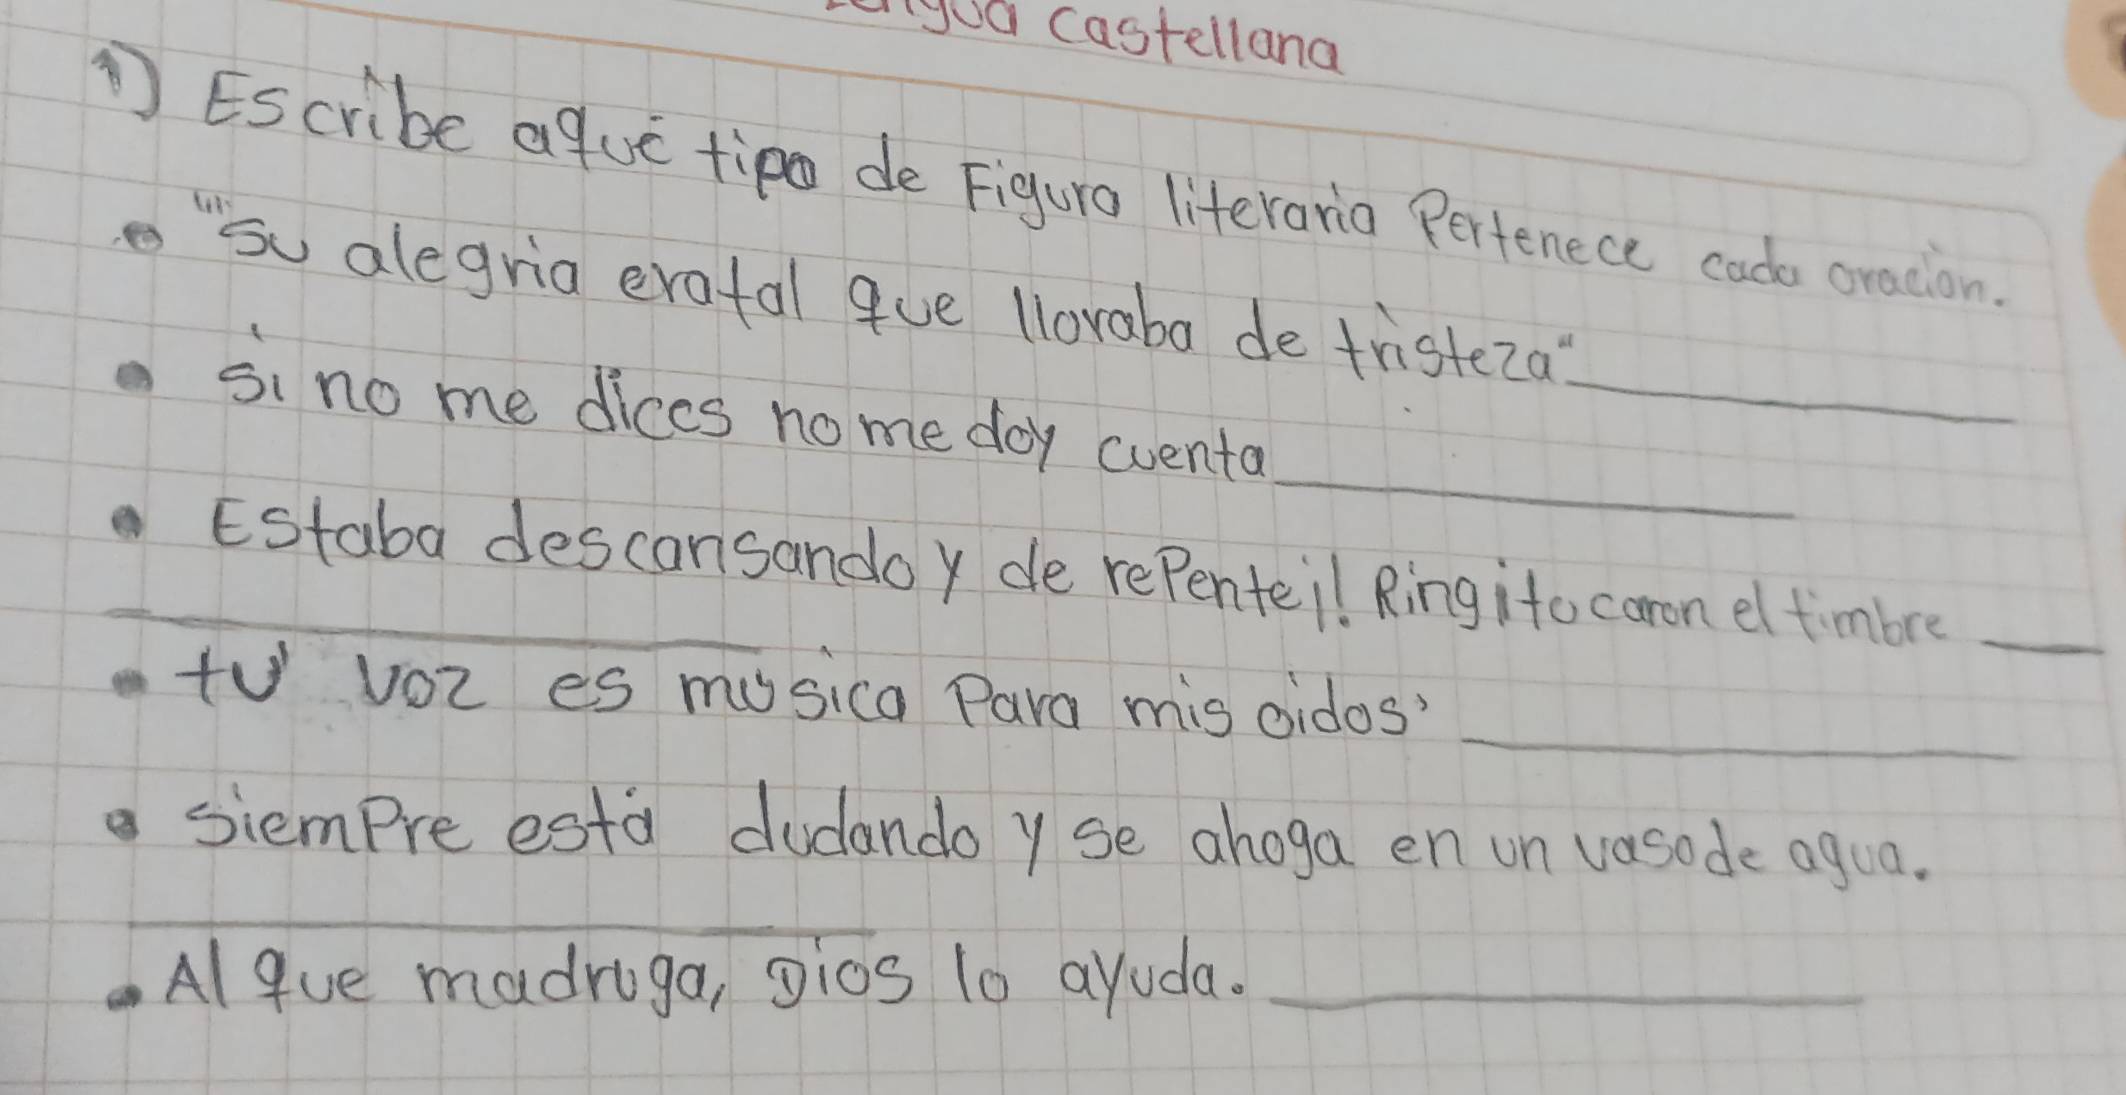 Lengua castellana
1) Escribe aqué tipo de Figura literaria Pertenece cada oración.
"Su alegria eratal que lloraba de tristeza"
si no me dices nomedoy cuenta
Estaba descansandoy de rePente¡! Ring¡tocaron el timbre
tú voz es música Para mis oidos'
siemPre está dudando y se ahoga en un vasode agua.
Al que madruga, Dios lo ayuda.